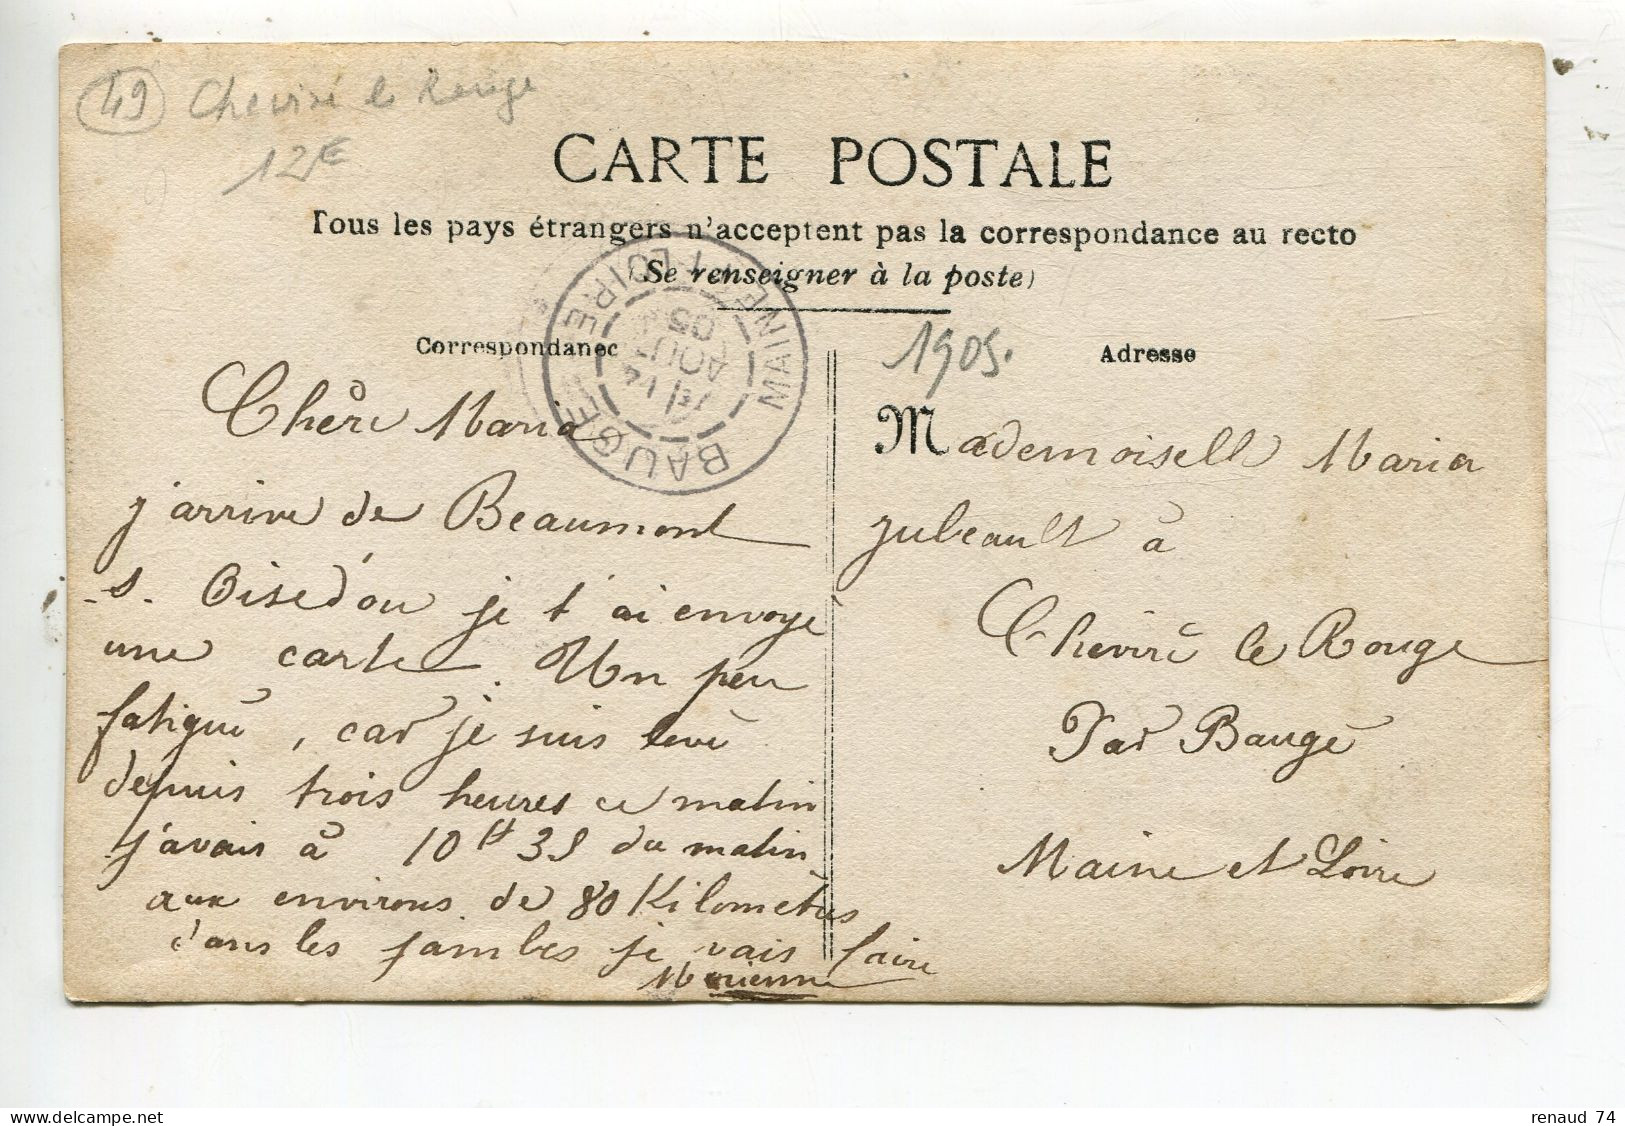 49 Cheviré le Rouge
12€
CARTE POSTALE
Tous les pays étrangers n'acceptent pas la correspondance au recto
(Se renseigner à la poste)
BAUGÉ MAINE ET LOIRE
AOUT
05
Correspondance
1905.
Adresse
Chère Maria
j'arrive de Beaumont
s. Oise d'ou je t'ai envoyé
une carte. Un peu
fatigué, car je suis levé
depuis trois heures ce matin
j'avais à 10 H 35 du matin
aux environs de 80 Kilomètres
dans les jambes je vais faire
Mademoiselle Maria
Jubeault à
Cheviré le Rouge
Par Baugé
Maine et Loire
delcampe.net
renaud_74